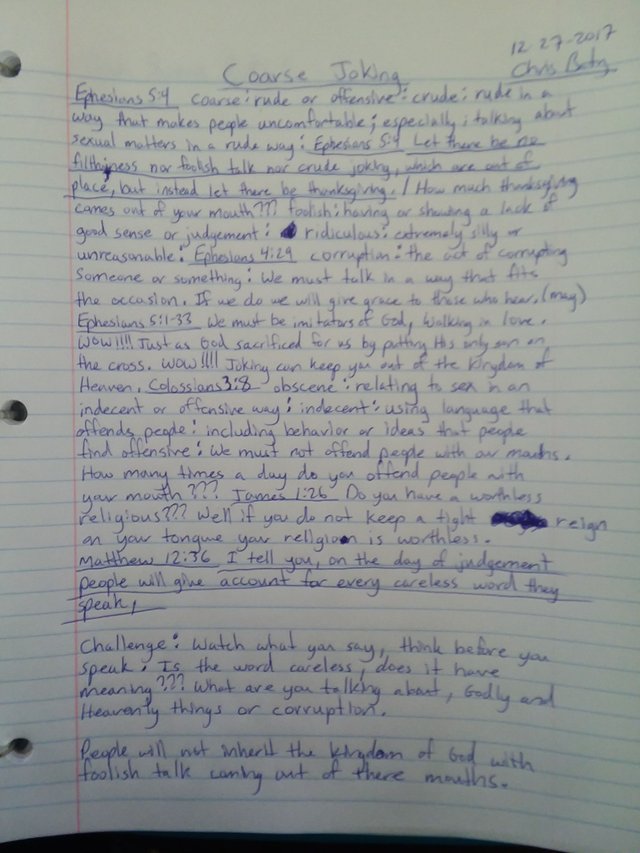 12-27-2017
Chris
Coarse Joking
Ephesians 5:4 coarse: rude or offensive: crude: rude in a
way that makes people uncomfortable; especially: talking about
sexual matters in a rude way: Ephesians 5:4 Let there be no
filthiness nor foolish talk nor crude joking, which are out of
place, but instead let there be thanksgiving. / How much thanksgiving
comes out of your mouth??? foolish: having or showing a lack of
good sense or judgement: ridiculous: extremely silly or
unreasonable: Ephesians 4:29 corruption: the act of corrupting
someone or something: We must talk in a way that fits
the occasion. If we do we will give grace to those who hear. (may)
Ephesians 5:1-33 We must be imitators of God, walking in love.
WOW!!!! Just as God sacrificed for us by putting His only son on
the cross. WOW!!!! Joking can keep you out of the kingdom of
Heaven. Colossians 3:8 obscene: relating to sex in an
indecent or offensive way: indecent: using language that
offends people: including behavior or ideas that people
find offensive: We must not offend people with our mouths.
How many times a day do you offend people with
your mouth??? James 1:26 Do you have a worthless
religious??? Well if you do not keep a tight reign
on your tongue your religion is worthless.
Matthew 12:36 I tell you, on the day of judgement
people will give account for every careless word they
speak,
Challenge: Watch what you say, think before you
speak: Is the word careless, does it have
meaning??? What are you talking about, Godly and
Heavenly things or corruption.
People will not inherit the kingdom of God with
foolish talk coming out of there mouths.